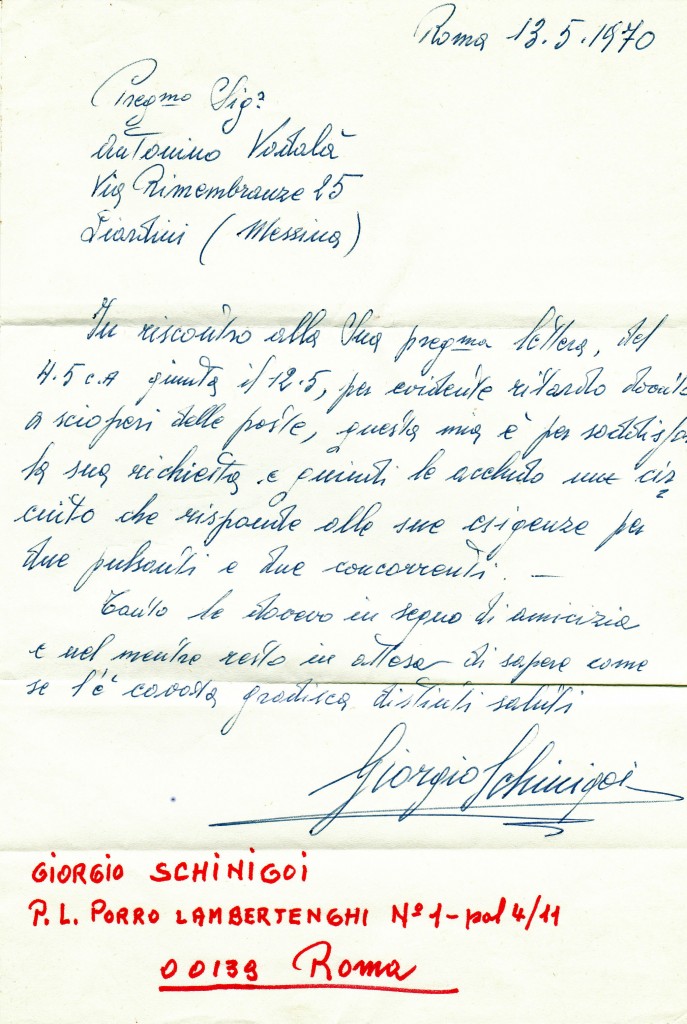 Roma 13.5.1970
Pregmo Sig?
Antonino Vadalà
Via Rimembranze 25
Giardini (Messina)
In riscontro alla Sua pregma lettera, del
4.5 c.A giunta il 12.5, per evidente ritardo dovuto
a scioperi delle poste, questa mia è per soddisfa
la sua richiesta e quindi le accludo une cir=
cuito che risponde alle sue esigenze per
due pulsanti e due concorrenti. —
Tanto le dovevo in segno di amicizia
e nel mentre resto in attesa di sapere come
se l'è cavata gradisca distinti saluti
Giorgio Schinigoi
GIORGIO SCHINIGOI
P. L. PORRO LAMBERTENGHI Nº 1 - pal 4/11
00139 Roma